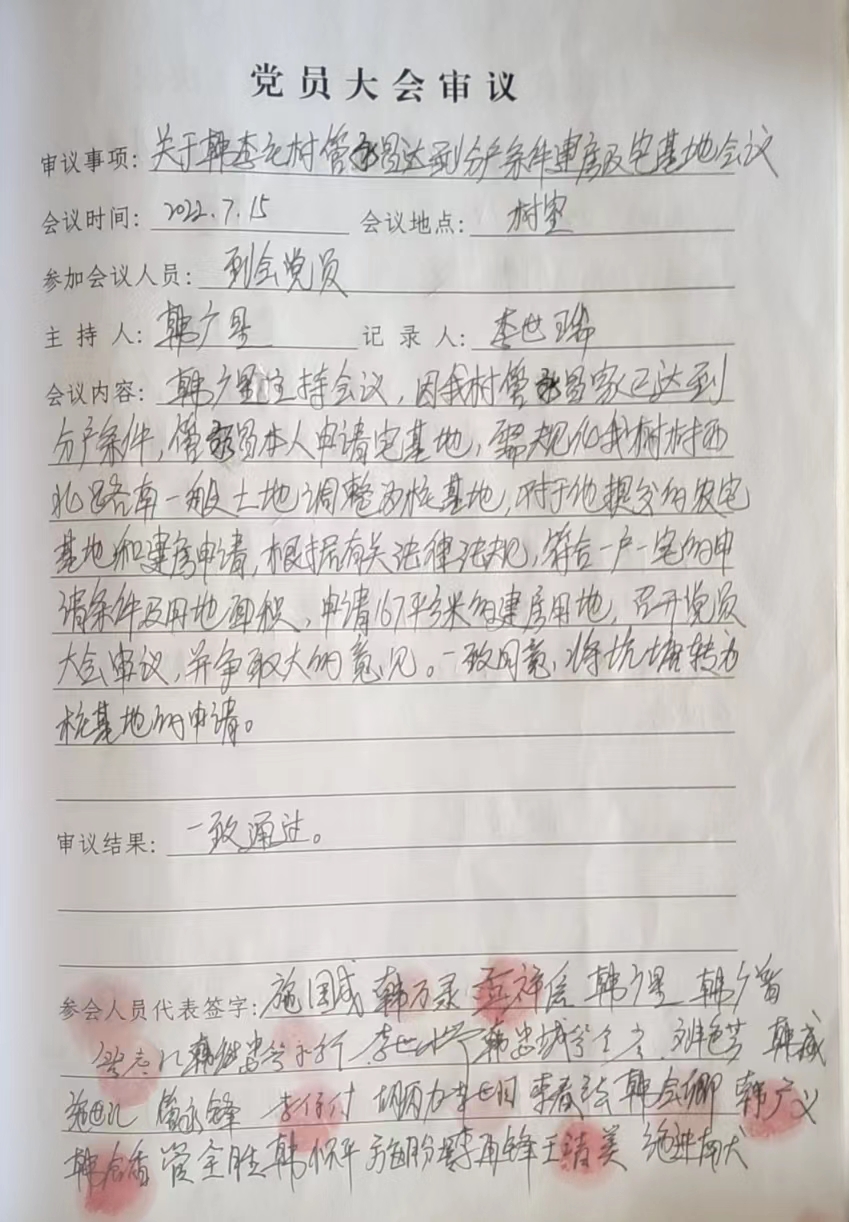 党员大会审议
审议事项：关于韩李毛村管永昌达到分户条件建房及宅基地会议
会议时间：2022.7.15 会议地点：村室
参加会议人员：到会党员
主持人：韩广星 记录人：李世瑞
会议内容：韩广星主持会议，因我村管永昌家已达到
分户条件，管永昌本人申请宅基地，需规化我村村西
北路南一般土地调整为桩基地，对于他提交的农宅
基地和建房申请，根据有关法律法规，符合一户一宅的申
请条件及用地面积，申请167平方米的建房用地，召开党员
大会审议，并争取大的意见。一致同意，将坑塘转为
桩基地的申请。
审议结果：一致通过。
参会人员代表签字：施国成 韩万录 祥信 韩广星 韩广
韩继忠 李世 韩忠 韩
管永锋 李仔付 李世 李春 韩会卿 韩广义
管全胜 韩怀平 李再锋 王清美